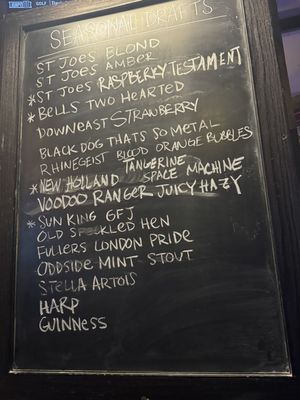 SEASONAL DRAFTS
ST JOES BLOND
ST JOES AMBER
* ST JOES RASPBERRY TESTAMENT
* BELLS TWO HEARTED
DOWNEAST STRAWBERRY
BLACK DOG THATS SO METAL
RHINEGEIST BLOOD ORANGE BUBBLES
* NEW HOLLAND TANGERINE SPACE MACHINE
VOODOO RANGER JUICY HAZY
* SUN KING GFJ
OLD SPECKLED HEN
FULLERS LONDON PRIDE
ODDSIDE MINT STOUT
STELLA ARTOIS
HARP
GUINNESS